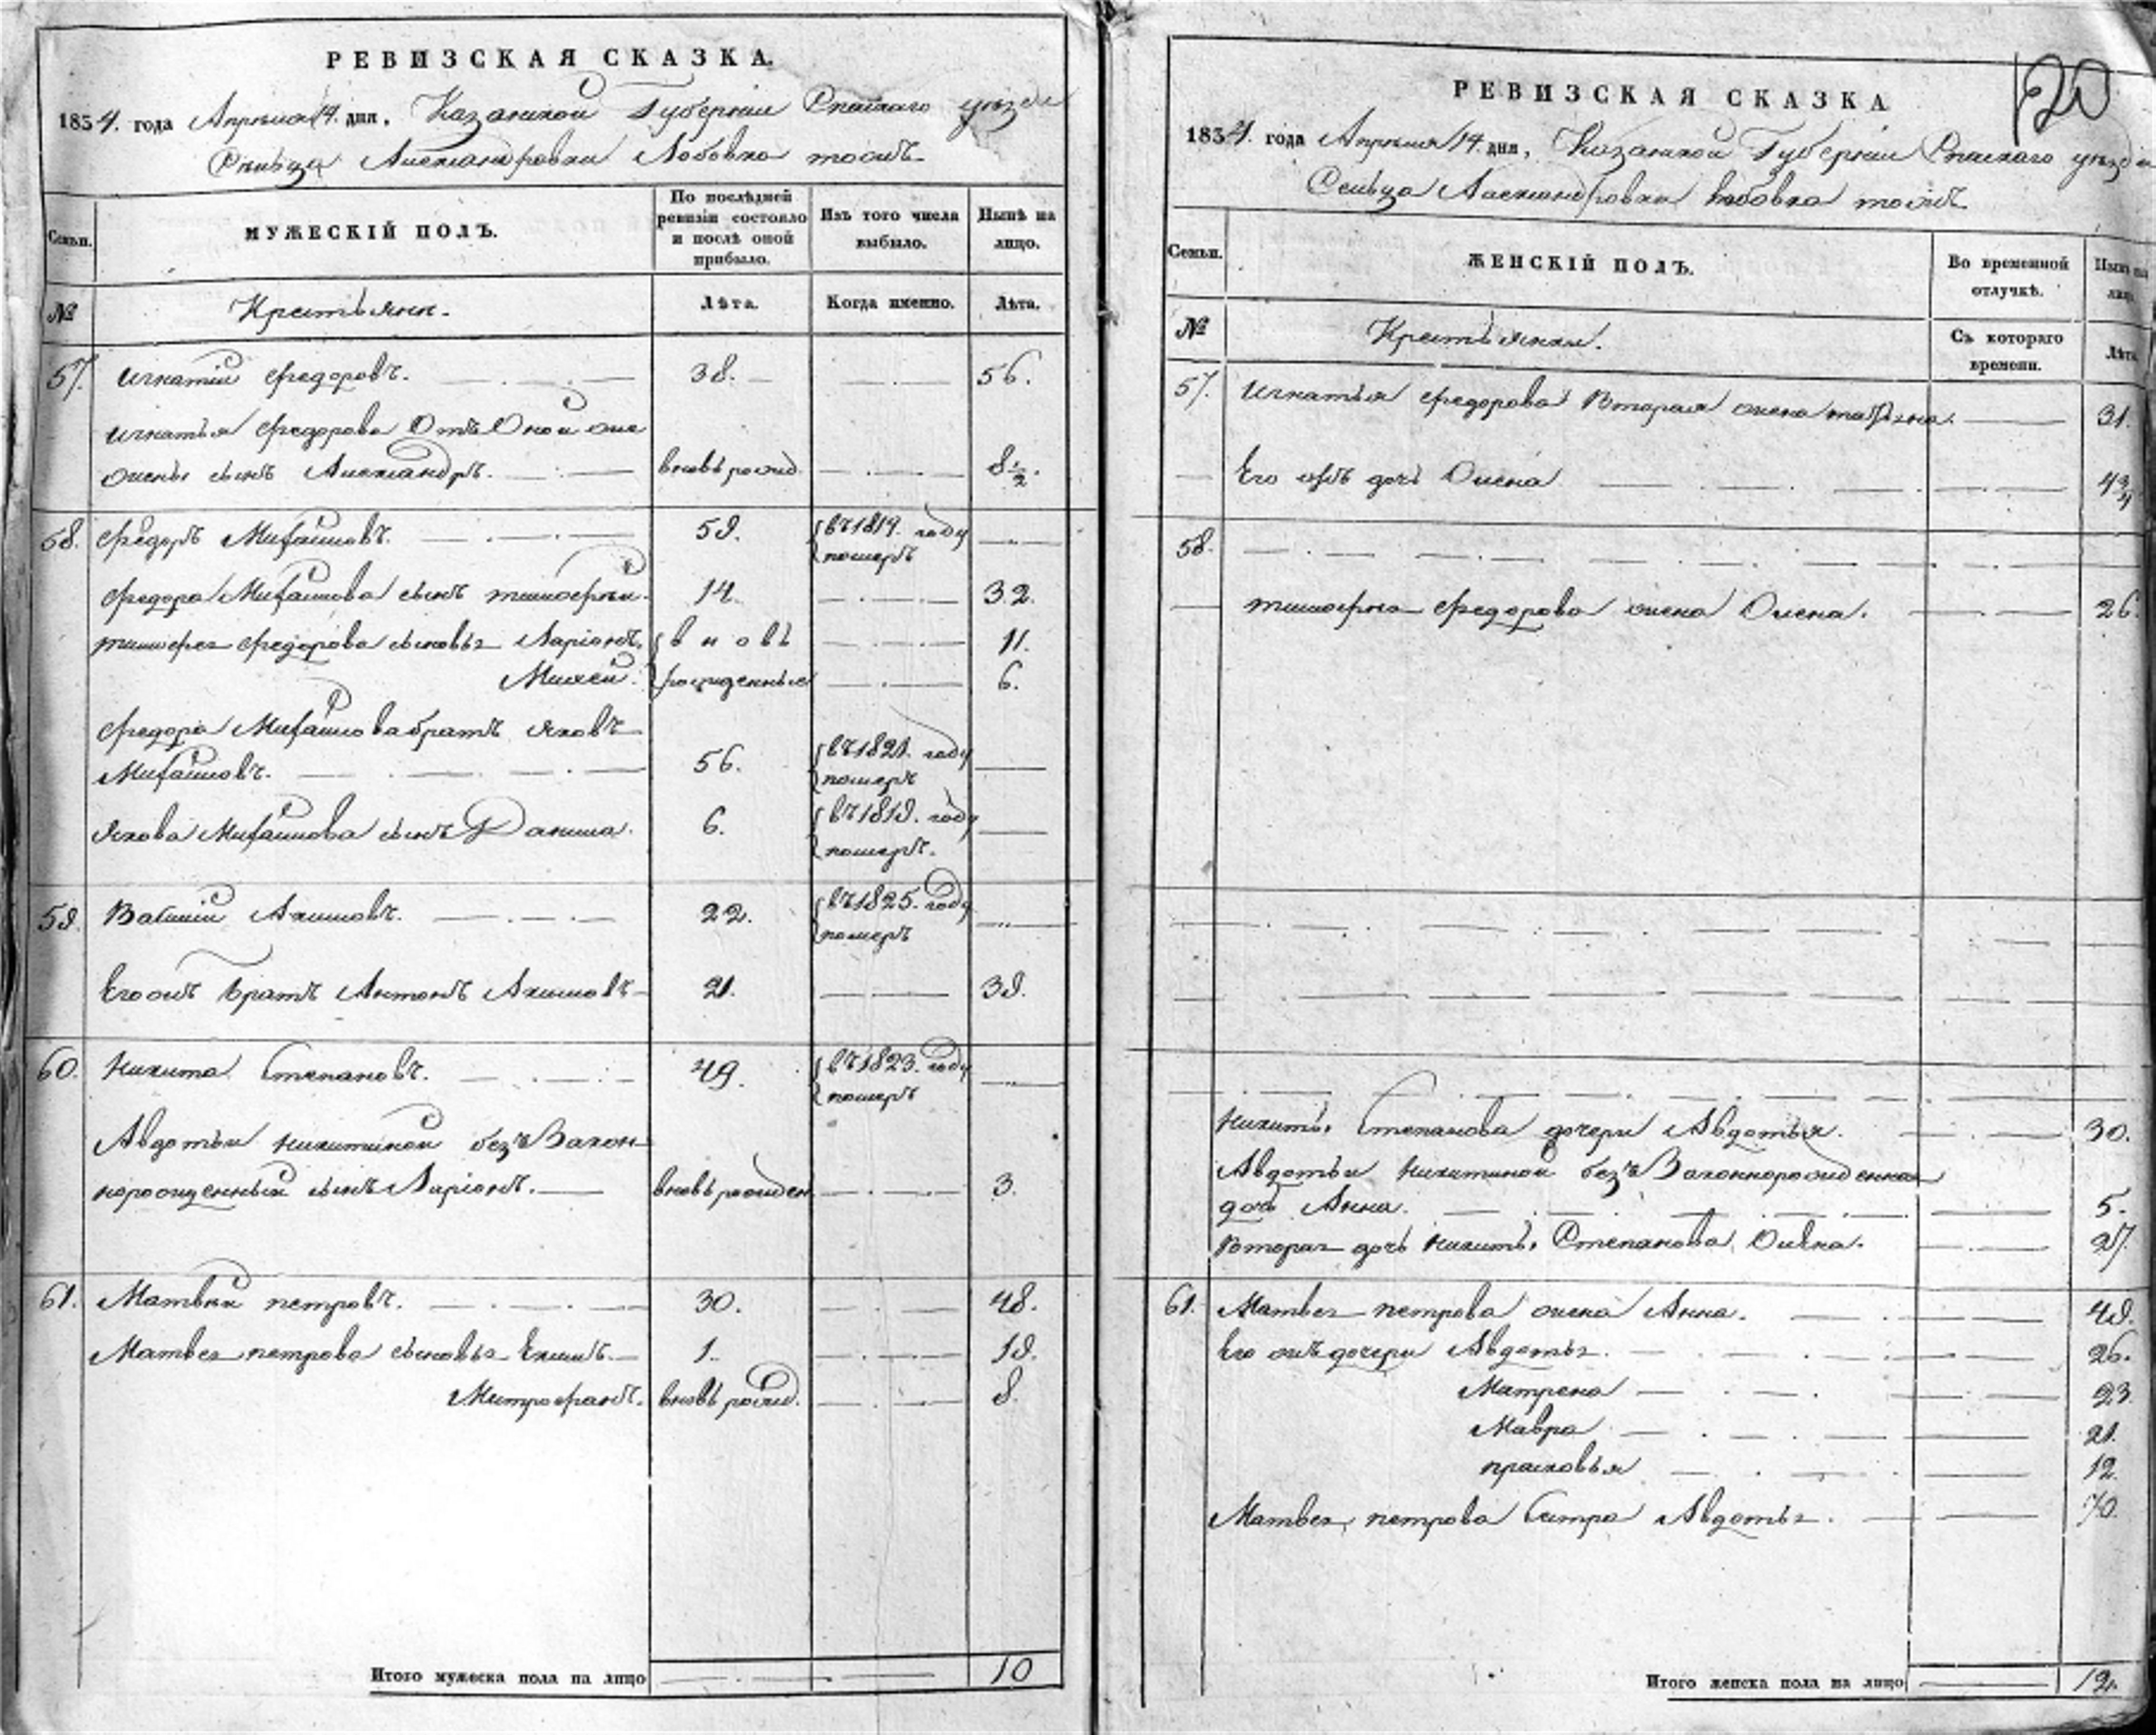 РЕВИЗСКАЯ СКАЗКА.
1834. года Апреля 14. дня, Казанской Губернии Спаскаго уезда
Сельца Александровки Лобовка тожъ
Семьи.
МУЖЕСКІЙ ПОЛЪ.
По послѣдней ревизіи состояло и послѣ оной прибыло.
Изъ того числа выбыло.
Нынѣ на лицо.
№
Крестьяни.
Лѣта.
Когда именно.
Лѣта.
57. Игнатій Федоровъ. 38. 56.
Игнатья Федорова Отъ Оной же
жены сынъ Александръ. вновь рожд. 8 1/2.
58. Федоръ Михайловъ. 59. въ 1819. году
померъ
Федора Михайлова сынъ Тимофей. 14. 32.
Тимофея Федорова сыновья Ларіонъ. вновь 11.
Михей. рожденные 6.
Федора Михайлова братъ Яковъ
Михайловъ. 56. въ 1821. году
померъ
Якова Михайлова сынъ Данила. 6. въ 1819. году
померъ.
59. Василій Акимовъ. 22. въ 1825. году
померъ
Его жъ братъ Антонъ Акимовъ 21. 39.
60. Никита Степановъ. 49. въ 1823. году
померъ
Авдотьи Никитиной безъ Закон
норожденный сынъ Ларіонъ. вновь рожден 3.
61. Матвей Петровъ. 30. 48.
Матвея Петрова сыновья Екимъ. 1. 19.
Митрофанъ. вновь рожд. 8.
Итого мужеска пола на лицо 10
120
РЕВИЗСКАЯ СКАЗКА
1834. года Апреля 14. дня, Казанской Губернии Спаскаго уезда
Сельца Александровки Лобовка тожъ
Семьи.
ЖЕНСКІЙ ПОЛЪ.
Во временной отлучкѣ.
Нынѣ на лицо
№
Крестьянки.
Съ котораго времени.
Лѣта
57. Игнатья Федорова Вторая жена 31.
Его жъ дочь Олена 4 3/4
58.
Тимофея Федорова жена Олена. 26.
Никиты Степанова дочери Авдотья. 30.
Авдотьи Никитиной безъ Законнорожденная
дочь Анна. 5.
Вторая дочь Никиты Степанова Олена. 27.
61. Матвея Петрова жена Анна. 49.
Его жъ дочери Авдотья. 26.
Матрена 23.
Мавра 21.
Прасковья 12.
Матвея Петрова Сестра Авдотья. 70.
Итого женска пола на лицо 12.